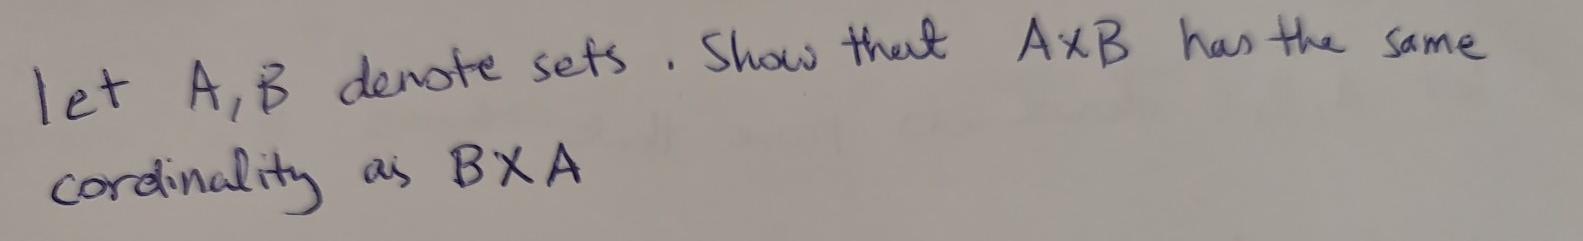 let A, B denote sets. Show that A×B has the same
cordinality as B×A